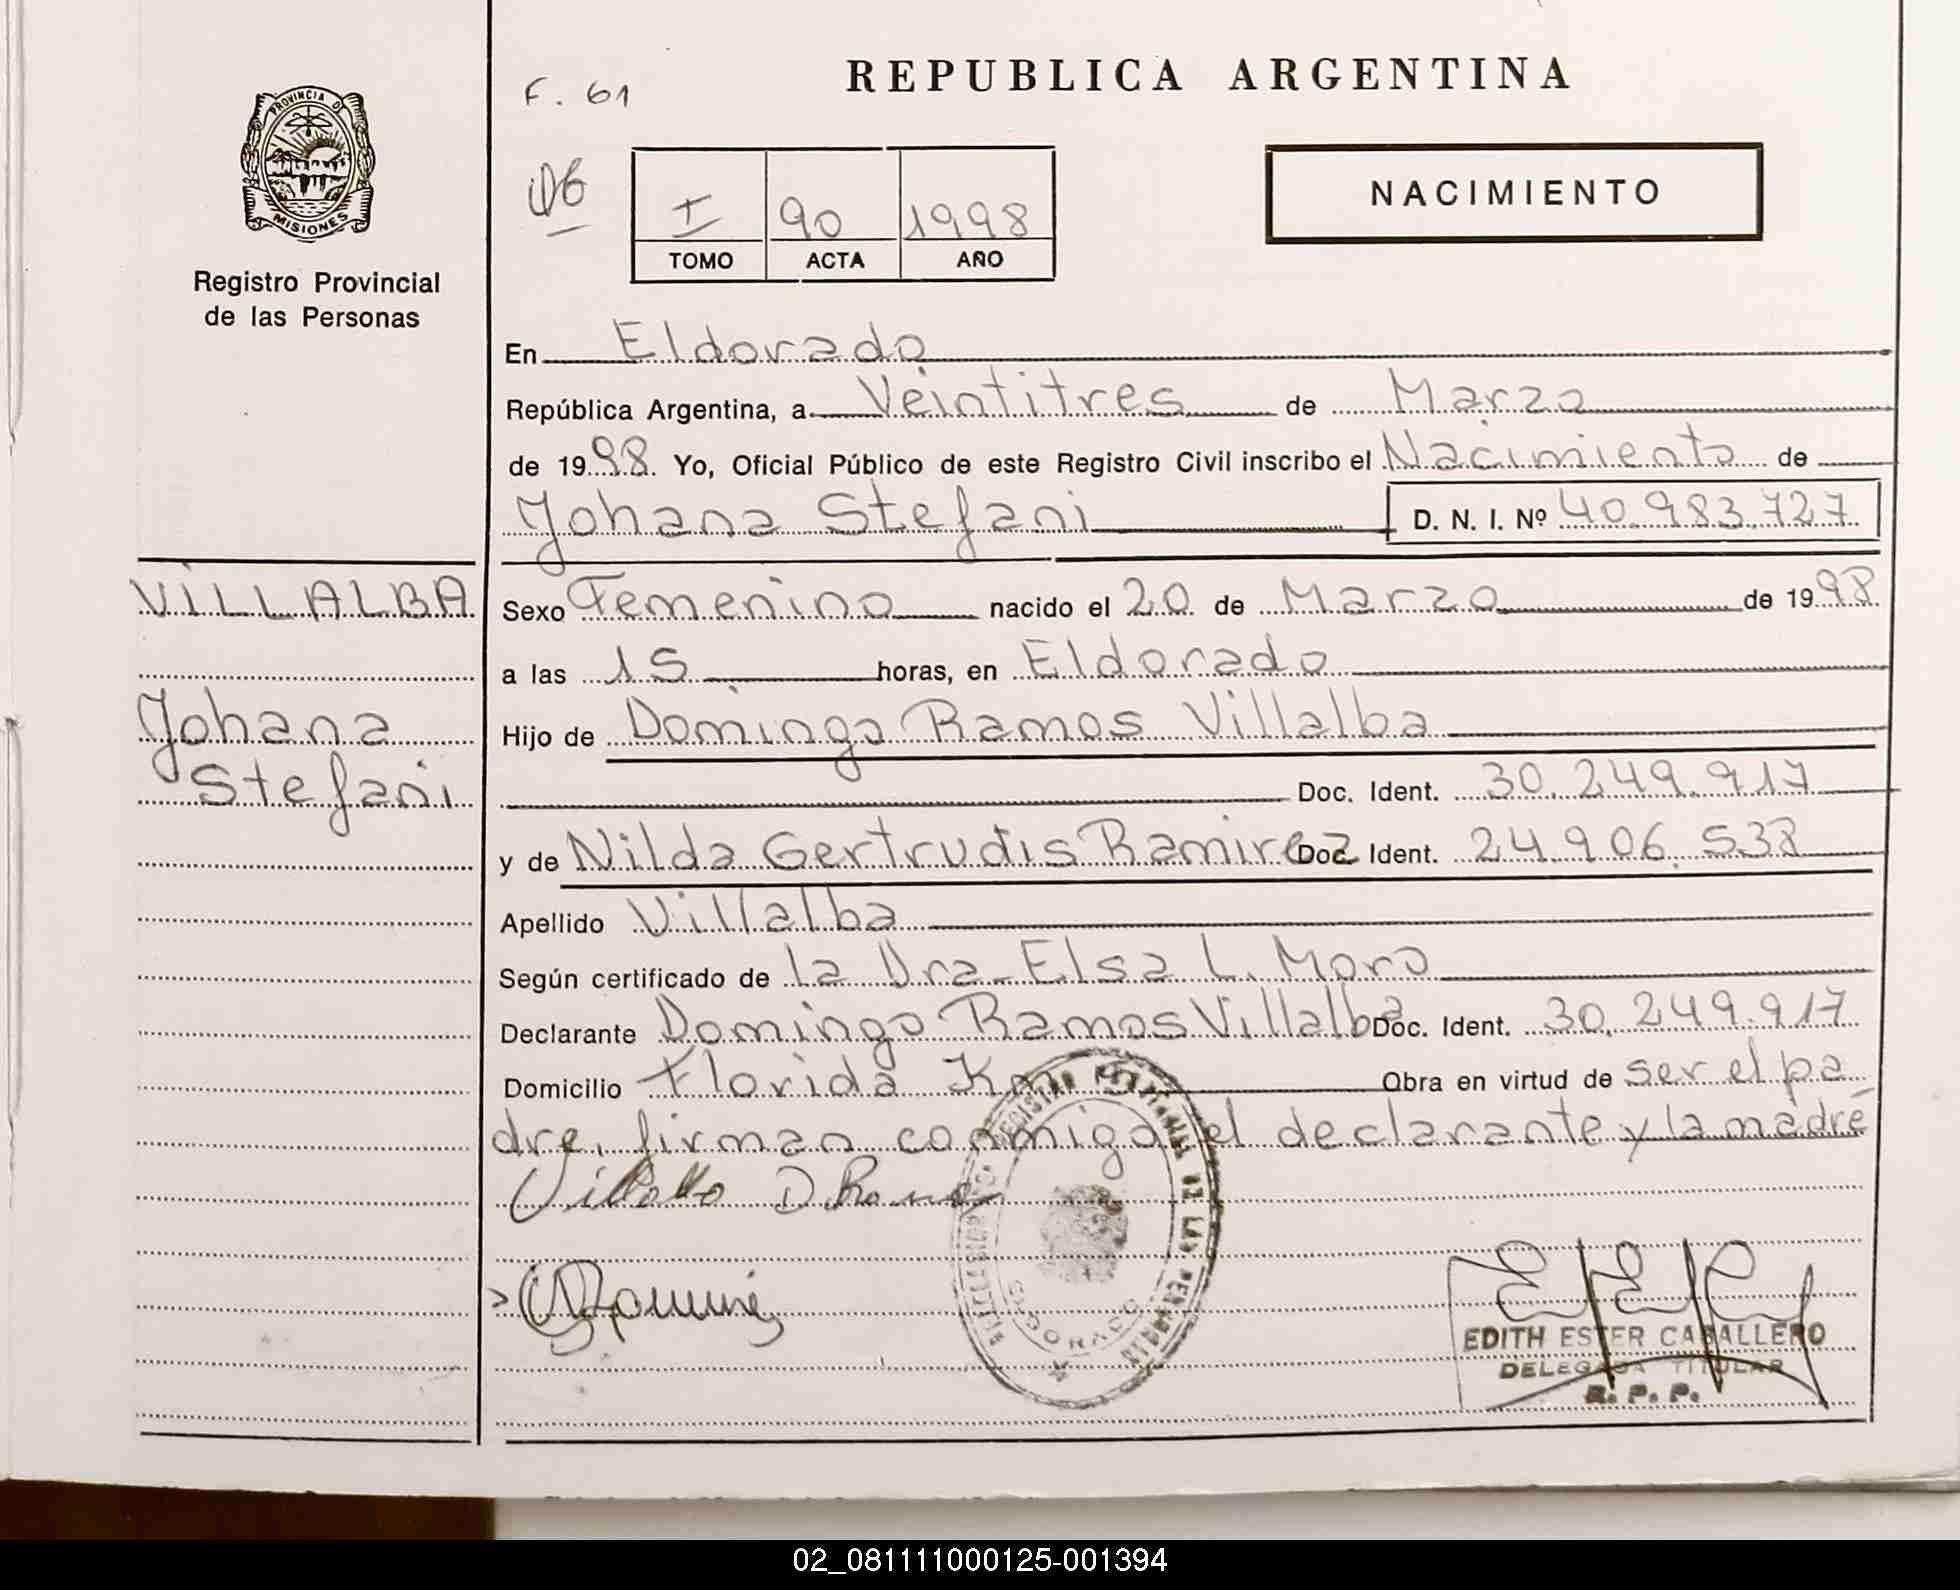 REPUBLICA ARGENTINA
F. 61
PROVINCIA DE
MISIONES
Registro Provincial
de las Personas
06
I 90 1998
TOMO ACTA AÑO
NACIMIENTO
En Eldorado
República Argentina, a Veintitres de Marzo
de 1998. Yo, Oficial Público de este Registro Civil inscribo el Nacimiento de
Yohana Stefani D. N. I. Nº 40.983.727
VILLALBA
Yohana
Stefani
Sexo Femenino nacido el 20 de Marzo de 1998
a las 15 horas, en Eldorado
Hijo de Domingo Ramos Villalba
Doc. Ident. 30.249.917
y de Nilda Gertrudis Ramirez Doc. Ident. 24.906.538
Apellido Villalba
Según certificado de la Dra. Elsa L. Moro
Declarante Domingo Ramos Villalba Doc. Ident. 30.249.917
Domicilio Florida Km Obra en virtud de ser el pa
dre, firman conmigo el declarante y la madre
Villalba D. Ramos
ELDORADO
EDITH ESTER CABALLERO
DELEGADA TITULAR
R. P. P.
02_081111000125-001394